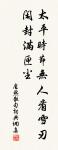 太平時節無人看雪刃
閑封滿匣塵